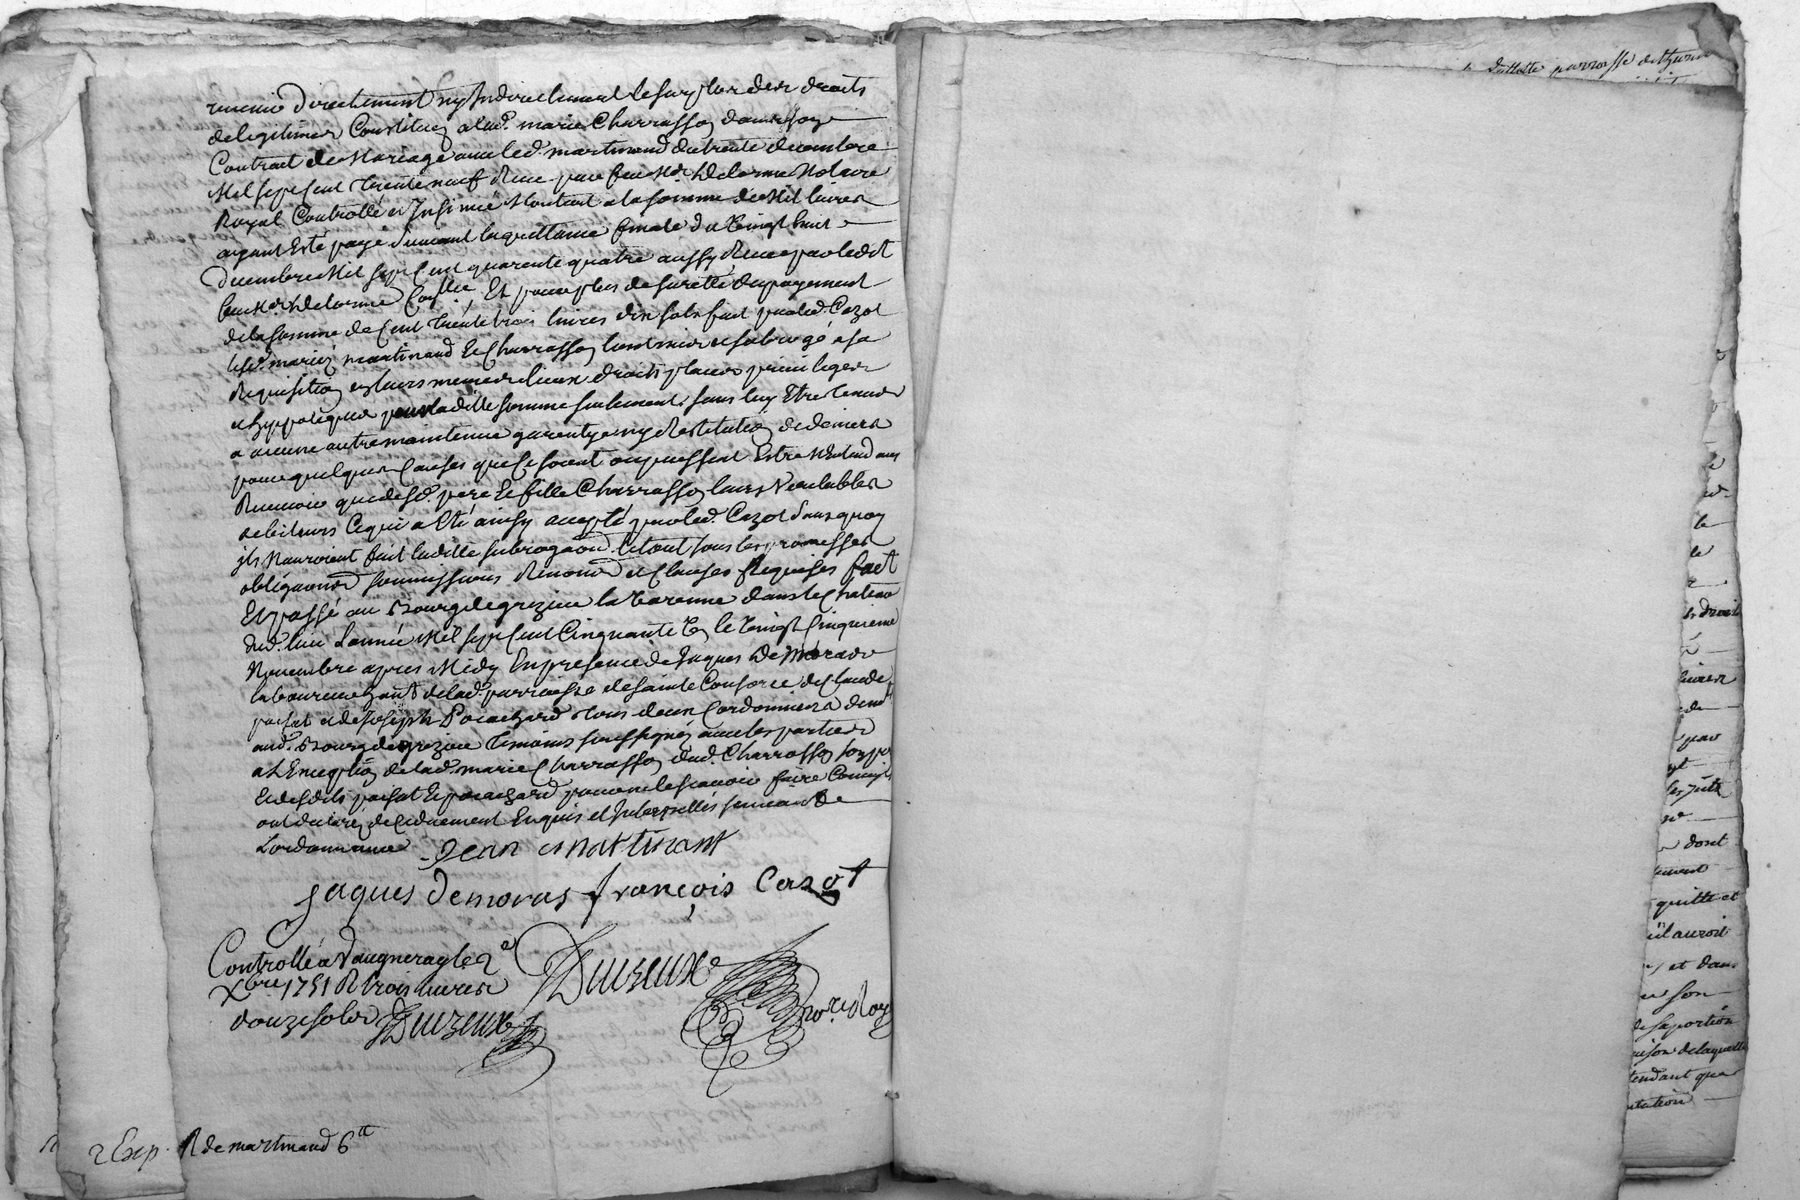 revenir directement ny Indirectement le surplus des droits
de legitimes Constituez a lad. marie Charrasson dans son
Contrat de Mariage avec led. martinand du trente decembre
Mil sept cent trente neuf Receu par feu Me Delorme Notaire
Royal Controllé et Insinué Montant a la somme de Mil livres
ayant Esté payé suivant la quittance finale du Vingt huit
decembre Mil sept cent quarente quatre aussy Receue par ledit
feu Me Delorme Et pour plus de surette du payement
de la somme de Cent trente trois livres dix sols fait par led. Cazot
lesd. mariez martinand Et Charrasson l'ont mis et subrogé a sa
Requisition en leurs memes lieux droits places privileges
et hyppoteques pour laditte somme seulement sans luy Etre tenus
a aucune autre maintenue garentye ny Restitution de deniers
pour quelques Causes que ce soient ou puissent Estre
que desd. pere Et fille Charrasson leurs Veritables
debiteurs Ce qui a Eté ainsy accepté par led. Cazot sans quoy
ils N'auroient fait laditte subrogaon Le tout sous les promesses
obligaons soumissions Renonons et Clauses Requises fait
Et passé au Bourg de grezieu la Varenne dans le Chateau
dud. lieu L'année Mil sept cent Cinquante Un le Vingt Cinquieme
Novembre apres Midy En presence de Jaques De Moras
laboureur de lad. parroisse de Sainte Consorce de Claude
et de Joseph Pocachard tous deux Cordonniers dem.t
aud. Bourg de grezieu temoins soussignés avec les parties
a L'Exception de lad. marie Charrasson dud. Charrasson son pere
Et desdits Et pocachard pour ne le scavoir faire Comme ils
ont declaré de Ce duement Enquis et Interpellés suivant
L'ordonnance Jean Martinant
jaques Demoras françois Cazot
Controllé a Vaugneray le 2e
Xbre 1751 R trois livres
douze sols Duizeux
Duizeux
No.re Roy
2 Exp. R de martinand 6tt
parroisse
droits
livres
de
par
dont
quitte et
il auroit
et dans
son
de sa portion
de laquelle
tendant que